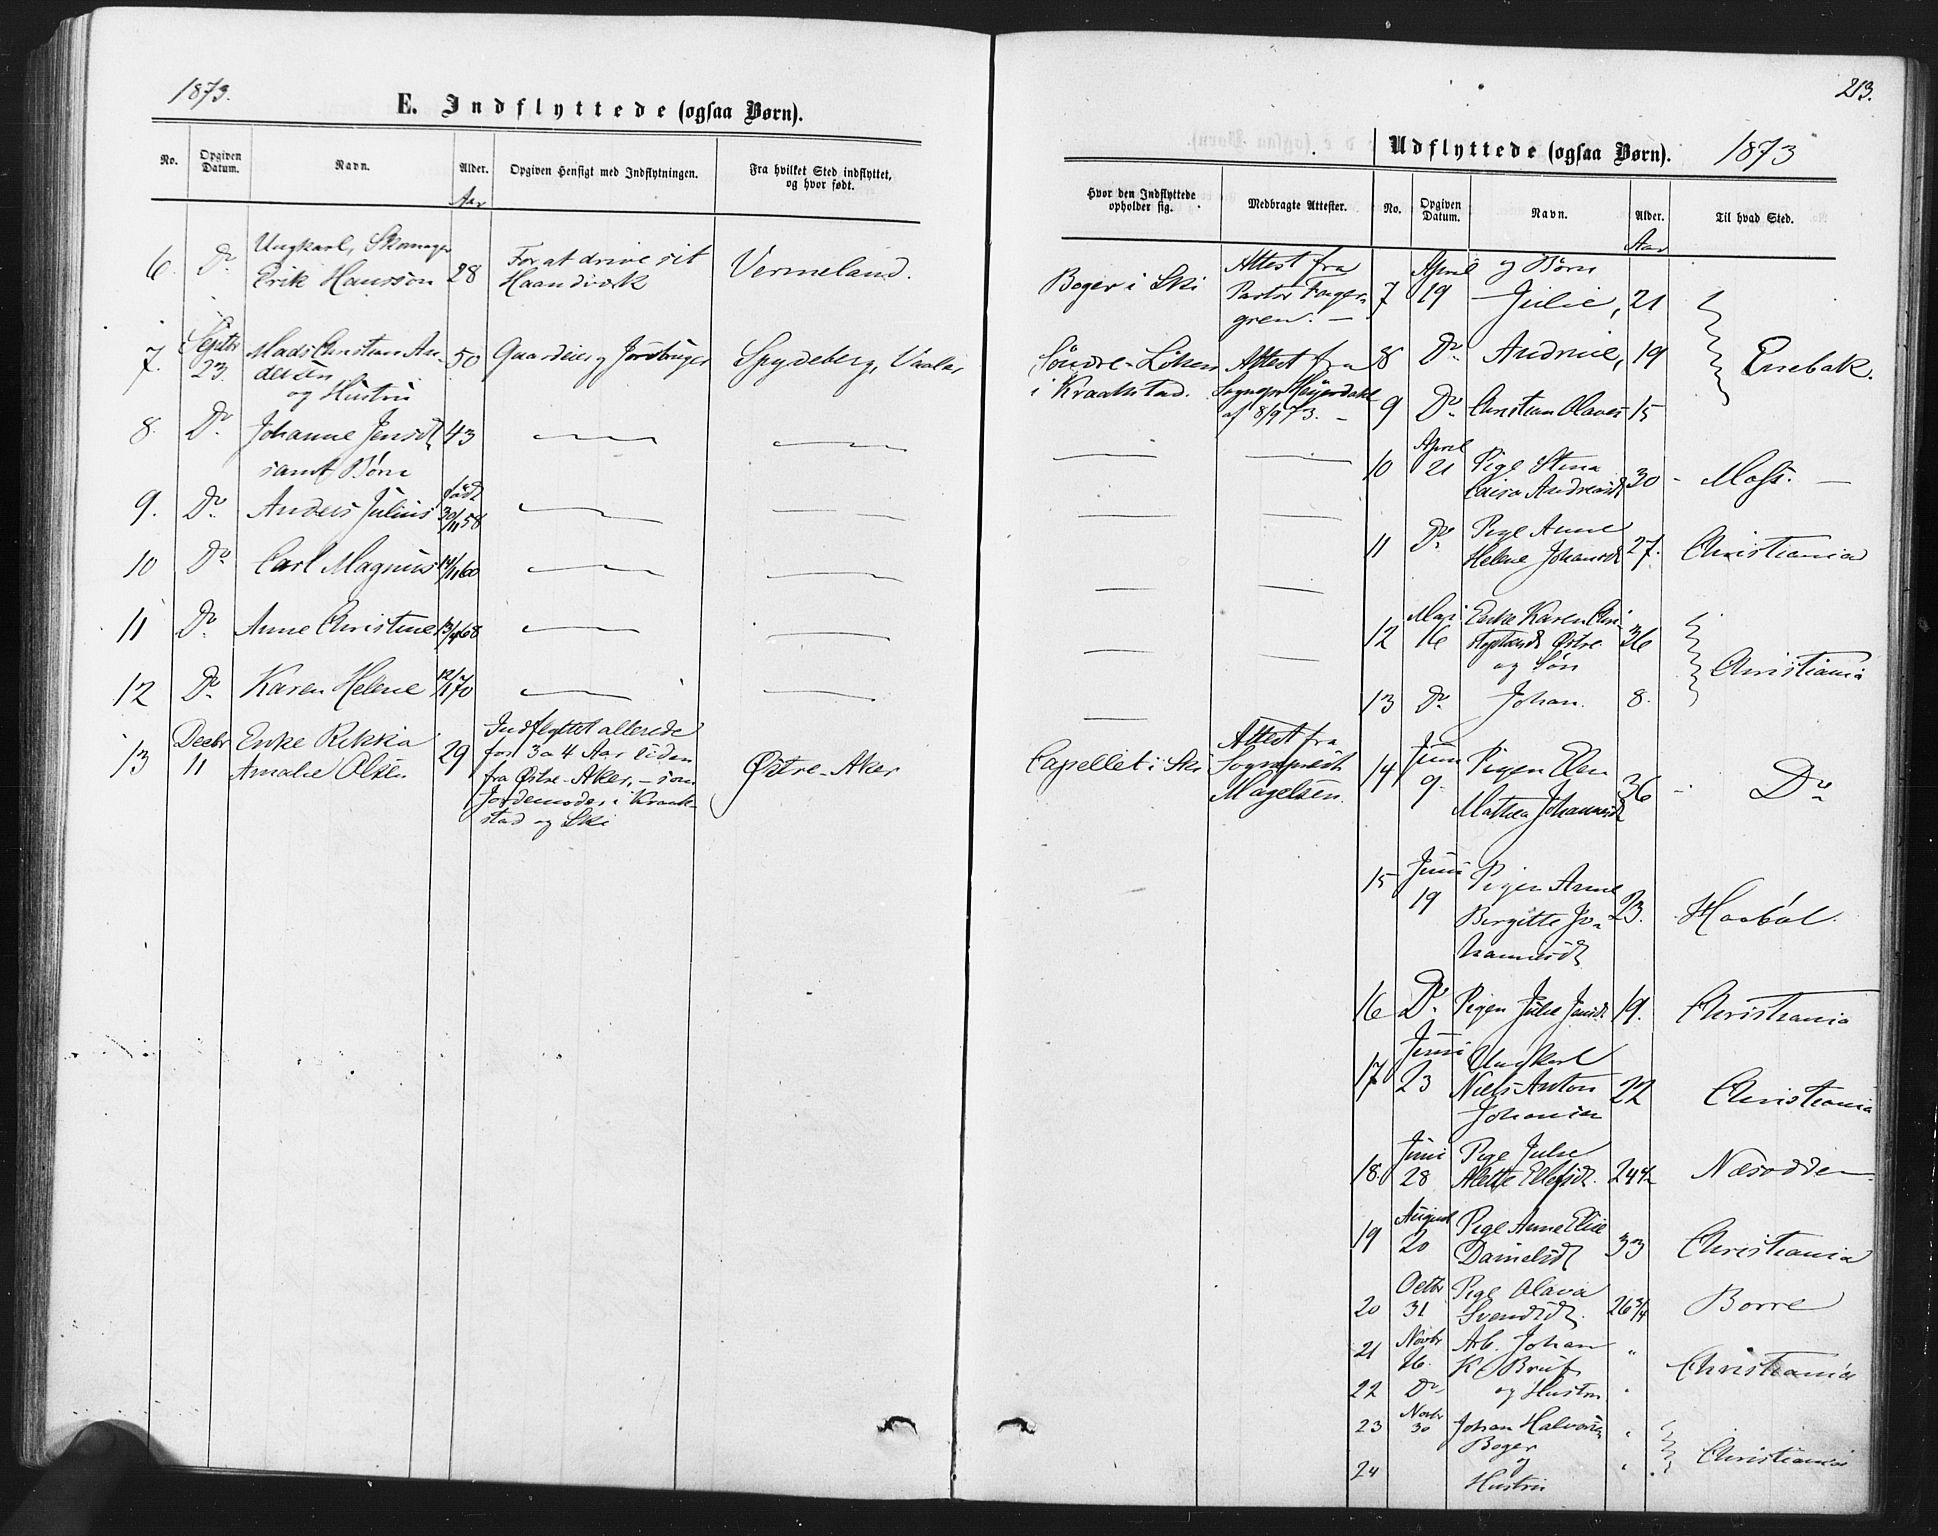 1873.
E. Indflyttede (ogsaa Børn).
No.
Opgiven Datum.
Navn.
Alder.
Opgiven Hensigt med Indflytningen.
Fra hvilket Sted indflyttet, og hvor født.
Aar
6. Do Ungkarl, Skomager
Erik Hansson 28 For at drive sit Haandværk Vermeland.
7. Septbr 23. Mads Christian Andersen 50 Gaardeier og Jordbruger Spydeberg, Vaaler
og Hustru
8. Do Johanne Jensdt 43 — —
samt Børn
9. Do Anders Julius født 30/11 58 — —
10 Do Carl Magnus 14/11 60 — —
11 Do Anne Christine 13/4 68 — —
12 Do Karen Helene — —
13 Decbr 11 Enke Rikka Amalie Olsen 29 Indflyttet allerede
for 3 a 4 Aar siden
fra Østre-Aker, – som
Jordemoder i Kraakstad og Ski
Østre-Aker
213.
Udflyttede (ogsaa Børn). 1873
Hvor den Indflyttede opholder sig.
Medbragte Attester.
No.
Opgiven Datum.
Navn.
Alder.
Til hvad Sted.
Aar
Boger i Ski
Attest fra
Pastor Fagergren. —
Søndre-Løken
i Kraakstad.
Attest fra
Sognepr. Heyerdahl
af 8/9 73. —
— —
— —
— —
— —
— —
Capellet i Ski
Attest fra
Sognepræst
Magelsen.
7 April 19 og Børn
Julie, 21
8 Do Andrine, 19 Enebak.
9 Do Christian Olaves 15
10 April 21 Pige Stina
Caisa Andreasdt 30 - Moss. —
11 Do Pige Anne
Helene Johansdt 27. Christiania
12 Mai 16 Enke Karen Christophersdt Østre 36
og Søn
Christiania
13 Do Johan. 8.
14 Juni 9. Pigen Elen
Mathea Johannesdt 36 - Do
15 Juni 19 Pigen Anne
Birgitte Johannesdt 23. Haabøl.
16 Do Pigen Julie Jansdt 19. Christiania
17 Juni 23 Ungkarl
Niels Anton
Johansen 22 Christiania
18. Juni 28 Pige Julie
Alette Ellefsdt. 24 1/2 Næsodden
19 August 20 Pige Anne Elise
Danielsdt 33 Christiania
20 Octbr 31 Pige Olava
Svendsdt. 26 3/4 Borre
21 Novbr 26. Arb. Johan
" Christiania
22 Do og Hustru "
23 Novbr 30 Johan Halvorsen
Boger "
og Christiania
24 Hustru "